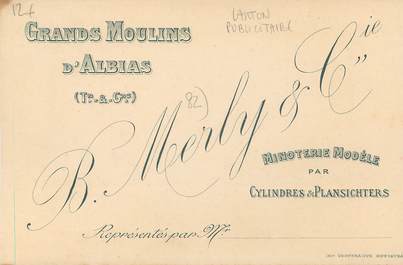 12€
CARTON
PUBLICITAIRE
GRANDS MOULINS
D'ALBIAS
(Tn.-&-Gne)
82)
B. Merly & Cie
MINOTERIE MODÈLE
PAR
CYLINDRES & PLANSICHTERS
Représentés par Mr